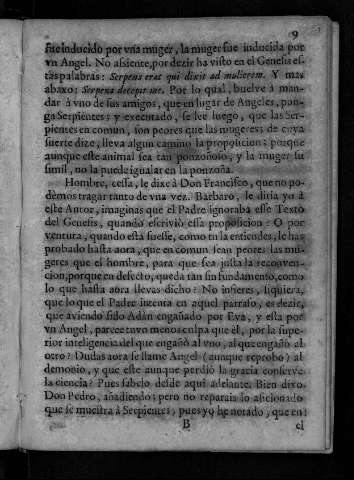 9
fue inducido por vna muger, la muger fue inducida por
vn Angel. No assiente, por dezir ha visto en el Genesis es-
tas palabras: Serpens erat qui dixit ad mulierem. Y mas
abaxo: Serpens decepit me. Por lo qual, buelve à man-
dar à vno de sus amigos, que en lugar de Angeles, pon-
ga Serpientes; y executado, se lee luego, que las Ser-
pientes en comun, son peores que las mugeres; de cuya
suerte dize, lleva algun camino la proposicion; porque
aunque este animal sea tan ponzoñoso, y la muger su
simil, no la puede igualar en la ponzoña.
Hombre, cessa, le dixe à Don Francisco, que no po-
dèmos tragar tanto de vna vez. Barbaro, le diria yo à
este Autor, imaginas que el Padre ignoraba esse Texto
del Genesis, quando escriviò essa proposicion? O por
ventura, quando està fuesse, como tu la entiendes, le has
probado hasta aora, que en comun sean peores las mu-
geres que el hombre, para que sea justa la reconven-
cion, porque en defecto, queda tan sin fundamento, como
lo que hasta aora llevas dicho? No infieres, siquiera,
que lo que el Padre intenta en aquel parrafo, es dezir,
que aviendo sido Adàn engañado por Eva, y esta por
vn Angel, parece tuvo menos culpa que èl, por la supe-
rior inteligencia del que engañò al vno, al que engañò al
otro? Dudas aora se llame Angel (aunque reprobo) al
demonio, y que este aunque perdiò la gracia conserve
la ciencia? Pues sabelo desde aqui adelante. Bien dixo,
Don Pedro, añadiendo; pero no reparais lo aficionado
que se muestra à Serpientes, pues yo he notado, que en
B el